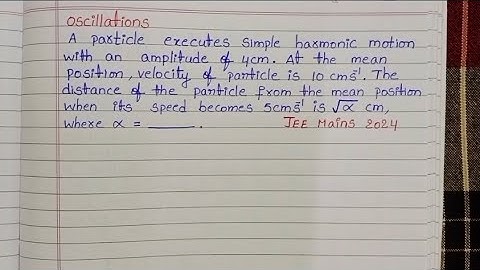 Oscillations
A particle executes simple harmonic motion
with an amplitude of 4cm. At the mean
position, velocity of particle is 10 cms⁻¹. The
distance of the particle from the mean position
when its speed becomes 5cms⁻¹ is √α cm,
where α = ______.
JEE Mains 2024